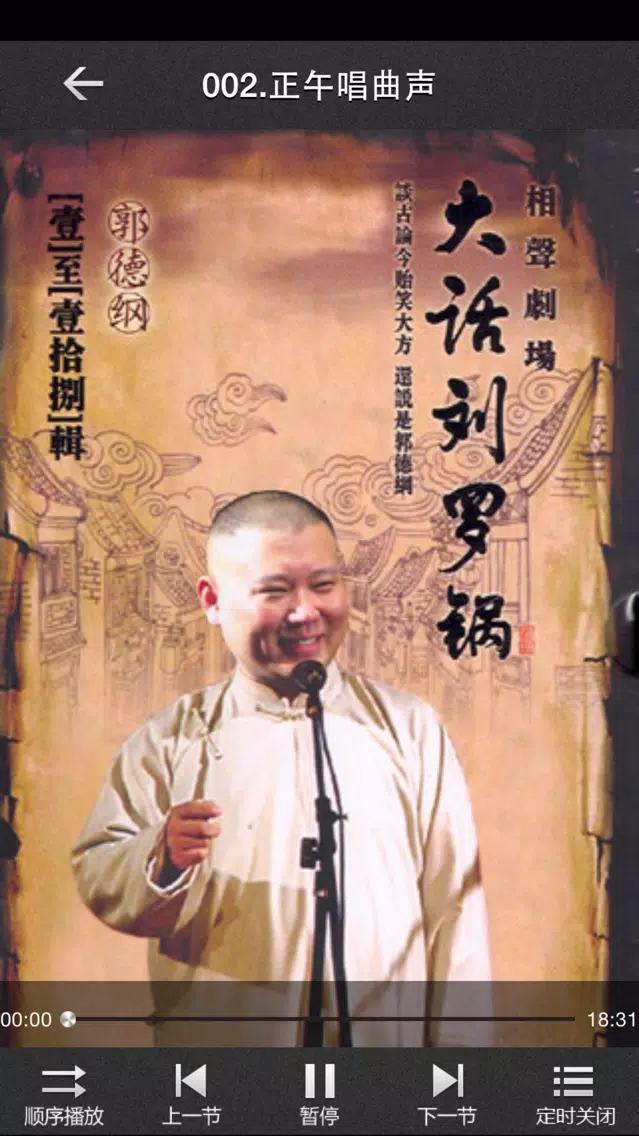 002.正午唱曲声
相聲劇場
大话刘罗锅
談古論今貽笑大方 還說是郭德綱
郭德纲
[壹]至[壹拾捌]輯
00:00
18:31
顺序播放
上一节
暂停
下一节
定时关闭